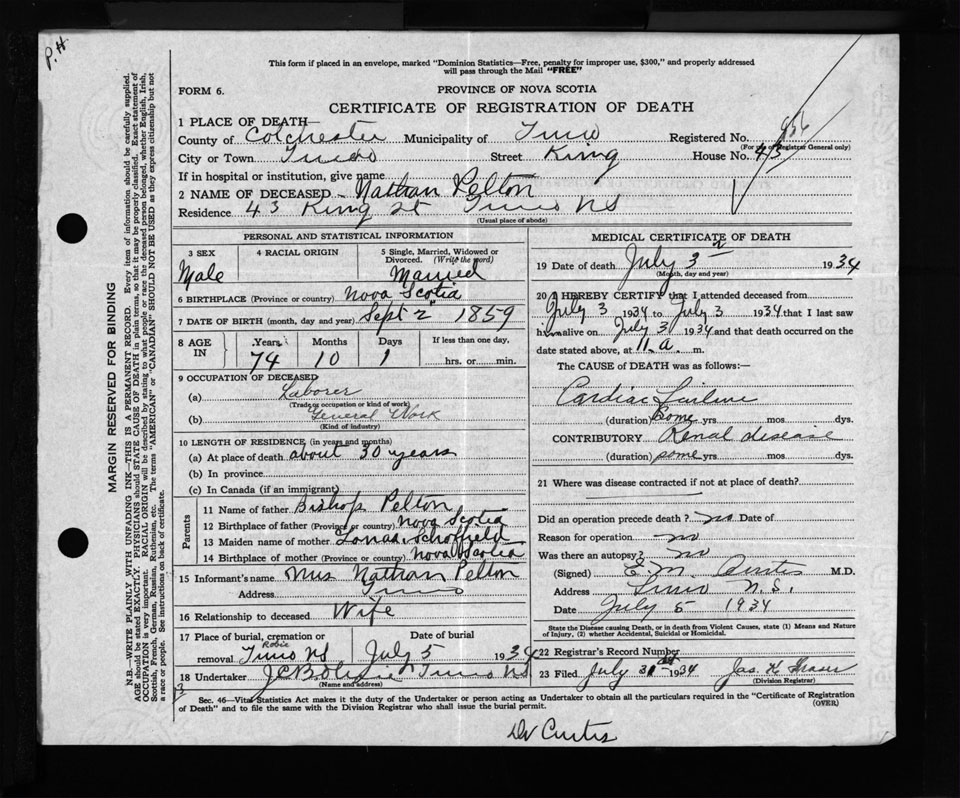 P.H.
This form if placed in an envelope, marked "Dominion Statistics—Free, penalty for improper use, $300," and properly addressed
will pass through the Mail "FREE"
FORM 6.
PROVINCE OF NOVA SCOTIA
CERTIFICATE OF REGISTRATION OF DEATH
1 PLACE OF DEATH
County of Colchester Municipality of Truro Registered No. 856
(For use of Registrar General only)
City or Town Truro Street King House No. 43
If in hospital or institution, give name
2 NAME OF DECEASED Nathan Pelton
Residence 43 King St Truro NS
(Usual place of abode)
PERSONAL AND STATISTICAL INFORMATION
3 SEX
Male
4 RACIAL ORIGIN
5 Single, Married, Widowed or
Divorced. (Write the word)
Married
6 BIRTHPLACE (Province or country) Nova Scotia
7 DATE OF BIRTH (month, day and year) Sept 2 1859
8 AGE IN
Years 74
Months 10
Days 1
If less than one day.
hrs. or min.
9 OCCUPATION OF DECEASED
(a) Laborer
(Trade or occupation or kind of work)
(b) General Work
(Kind of industry)
10 LENGTH OF RESIDENCE (in years and months)
(a) At place of death about 30 years
(b) In province
(c) In Canada (if an immigrant)
Parents
11 Name of father Bishop Pelton
12 Birthplace of father (Province or country) Nova Scotia
13 Maiden name of mother Schofield
14 Birthplace of mother (Province or country) Nova Scotia
15 Informant's name Mrs Nathan Pelton
Address Truro
16 Relationship to deceased Wife
17 Place of burial, cremation or
removal Robie Truro NS
Date of burial
July 5 1934
18 Undertaker Truro NS
(Name and address)
MEDICAL CERTIFICATE OF DEATH
19 Date of death July 3 1934
(Month, day and year)
20 I HEREBY CERTIFY that I attended deceased from
July 3 1934 to July 3 1934 that I last saw
him alive on July 3 1934 and that death occurred on the
date stated above, at 11 a. m.
The CAUSE of DEATH was as follows:—
Cardiac Failure
(duration) some yrs. mos. dys.
CONTRIBUTORY Renal disease
(duration) some yrs. mos. dys.
21 Where was disease contracted if not at place of death?
Did an operation precede death? no Date of
Reason for operation no
Was there an autopsy? no
(Signed) E M Curtis M.D.
Address Truro N.S.
Date July 5 1934
State the Disease causing Death, or in death from Violent Causes, state (1) Means and Nature
of Injury, (2) whether Accidental, Suicidal or Homicidal.
22 Registrar's Record Number
23 Filed July 31 1934 Jas. H Fraser
(Division Registrar)
Sec. 46—Vital Statistics Act makes it the duty of the Undertaker or person acting as Undertaker to obtain all the particulars required in the "Certificate of Registration
of Death" and to file the same with the Division Registrar who shall issue the burial permit.
(OVER)
Dr Curtis
MARGIN RESERVED FOR BINDING
N.B.—WRITE PLAINLY WITH UNFADING INK—THIS IS A PERMANENT RECORD. Every item of information should be carefully supplied.
AGE should be stated EXACTLY. PHYSICIANS should STATE CAUSE OF DEATH in plain terms, so that it may be properly classified. Exact statement of
OCCUPATION is very important. RACIAL ORIGIN will be described by stating to what people or race the deceased person belonged, whether English, Irish,
Scottish, French, German, Russian, Ruthenian, etc. The terms "AMERICAN" or "CANADIAN" SHOULD NOT BE USED as they express citizenship but not
a race or people. See instructions on back of certificate.